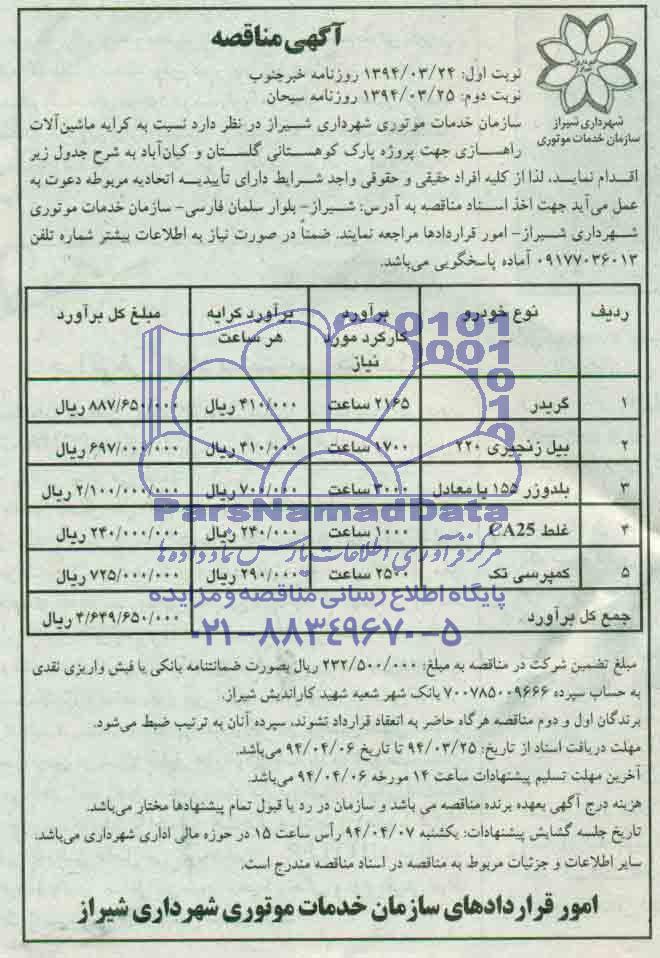 آگهی مناقصه
نوبت اول: ۱۳۹۴/۰۳/۲۴ روزنامه خبرجنوب
نوبت دوم: ۱۳۹۴/۰۳/۲۵ روزنامه سبحان
شهرداری شیراز
سازمان خدمات موتوری
سازمان خدمات موتوری شهرداری شیراز در نظر دارد نسبت به کرایه ماشین‌آلات
راهسازی جهت پروژه پارک کوهستانی گلستان و کیان‌آباد به شرح جدول زیر
اقدام نماید، لذا از کلیه افراد حقیقی و حقوقی واجد شرایط دارای تأییدیه اتحادیه مربوطه دعوت به
عمل می‌آید جهت اخذ اسناد مناقصه به آدرس: شیراز- بلوار سلمان فارسی- سازمان خدمات موتوری
شهرداری شیراز- امور قراردادها مراجعه نمایند. ضمناً در صورت نیاز به اطلاعات بیشتر شماره تلفن
۰۹۱۷۷۰۳۶۰۱۳ آماده پاسخگویی می‌باشد.
ردیف نوع خودرو برآورد کارکرد مورد نیاز برآورد کرایه هر ساعت مبلغ کل برآورد
۱ گریدر ۲۱۶۵ ساعت ۴۱۰/۰۰۰ ریال ۸۸۷/۶۵۰/۰۰۰ ریال
۲ بیل زنجیری ۲۲۰ ۱۷۰۰ ساعت ۴۱۰/۰۰۰ ریال ۶۹۷/۰۰۰/۰۰۰ ریال
۳ بلدوزر ۱۵۵ یا معادل ۳۰۰۰ ساعت ۷۰۰/۰۰۰ ریال ۲/۱۰۰/۰۰۰/۰۰۰ ریال
۴ غلط CA25 ۱۰۰۰ ساعت ۲۴۰/۰۰۰ ریال ۲۴۰/۰۰۰/۰۰۰ ریال
۵ کمپرسی تک ۲۵۰۰ ساعت ۲۹۰/۰۰۰ ریال ۷۲۵/۰۰۰/۰۰۰ ریال
جمع کل برآورد ۴/۶۴۹/۶۵۰/۰۰۰ ریال
0101
0001
10
10
0
ParsNamadData
مرکز فرآوری اطلاعات پارس نماد داده ها
پایگاه اطلاع رسانی مناقصه و مزایده
۰۲۱-۸۸۳۴۹۶۷۰-۵
مبلغ تضمین شرکت در مناقصه به مبلغ: ۲۳۲/۵۰۰/۰۰۰ ریال بصورت ضمانتنامه بانکی یا فیش واریزی نقدی
به حساب سپرده ۷۰۰۷۸۵۰۰۹۶۶۶ بانک شهر شعبه شهید کاراندیش شیراز.
برندگان اول و دوم مناقصه هرگاه حاضر به انعقاد قرارداد نشوند، سپرده آنان به ترتیب ضبط می‌شود.
مهلت دریافت اسناد از تاریخ: ۹۴/۰۳/۲۵ تا تاریخ ۹۴/۰۴/۰۶ می‌باشد.
آخرین مهلت تسلیم پیشنهادات ساعت ۱۴ مورخه ۹۴/۰۴/۰۶ می‌باشد.
هزینه درج آگهی بعهده برنده مناقصه می باشد و سازمان در رد یا قبول تمام پیشنهادها مختار می‌باشد.
تاریخ جلسه گشایش پیشنهادات: یکشنبه ۹۴/۰۴/۰۷ رأس ساعت ۱۵ در حوزه مالی اداری شهرداری می‌باشد.
سایر اطلاعات و جزئیات مربوط به مناقصه در اسناد مناقصه مندرج است.
امور قراردادهای سازمان خدمات موتوری شهرداری شیراز